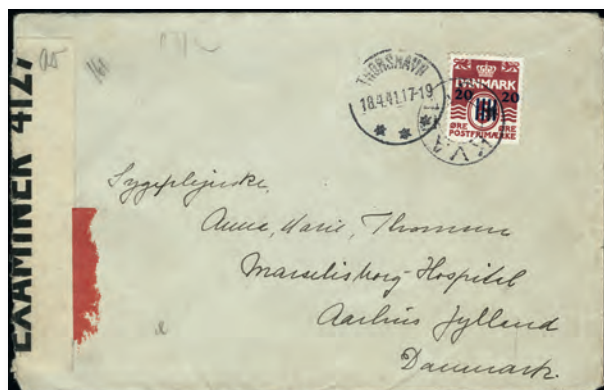 EXAMINER 4127
161
THORSHAVN
18.4.41.17-19
DANMARK
20 20
ØRE ØRE
POSTFRIMÆRKE
KVA
Sygeplejerske,
Anne, Marie, Thomsen
Marselisborg-Hospitel
Aarhus Jylland
Danmark.